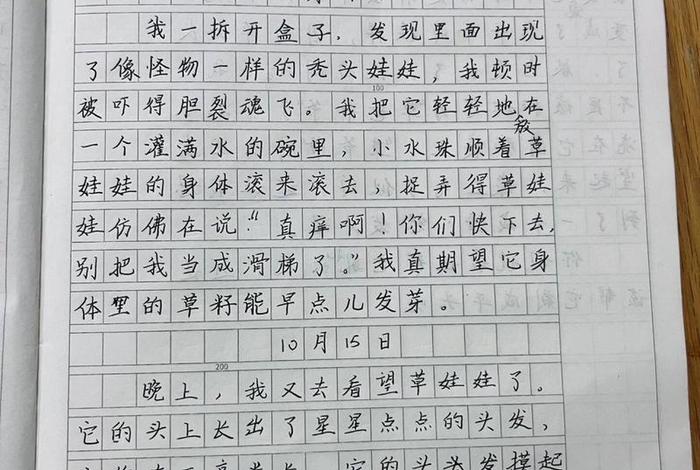 我一拆开盒子，发现里面出现
了像怪物一样的秃头娃娃，我顿时
100
被吓得胆裂魂飞。我把它轻轻地放在
一个灌满水的碗里，小水珠顺着草
娃娃的身体滚来滚去，捉弄得草娃
娃仿佛在说“真痒啊！你们快下去，
别把我当成滑梯了。”我真期望它身
体里的草籽能早点儿发芽。
10月15日
200
晚上，我又去看望草娃娃了。
它的头上长出了星星点点的头发，